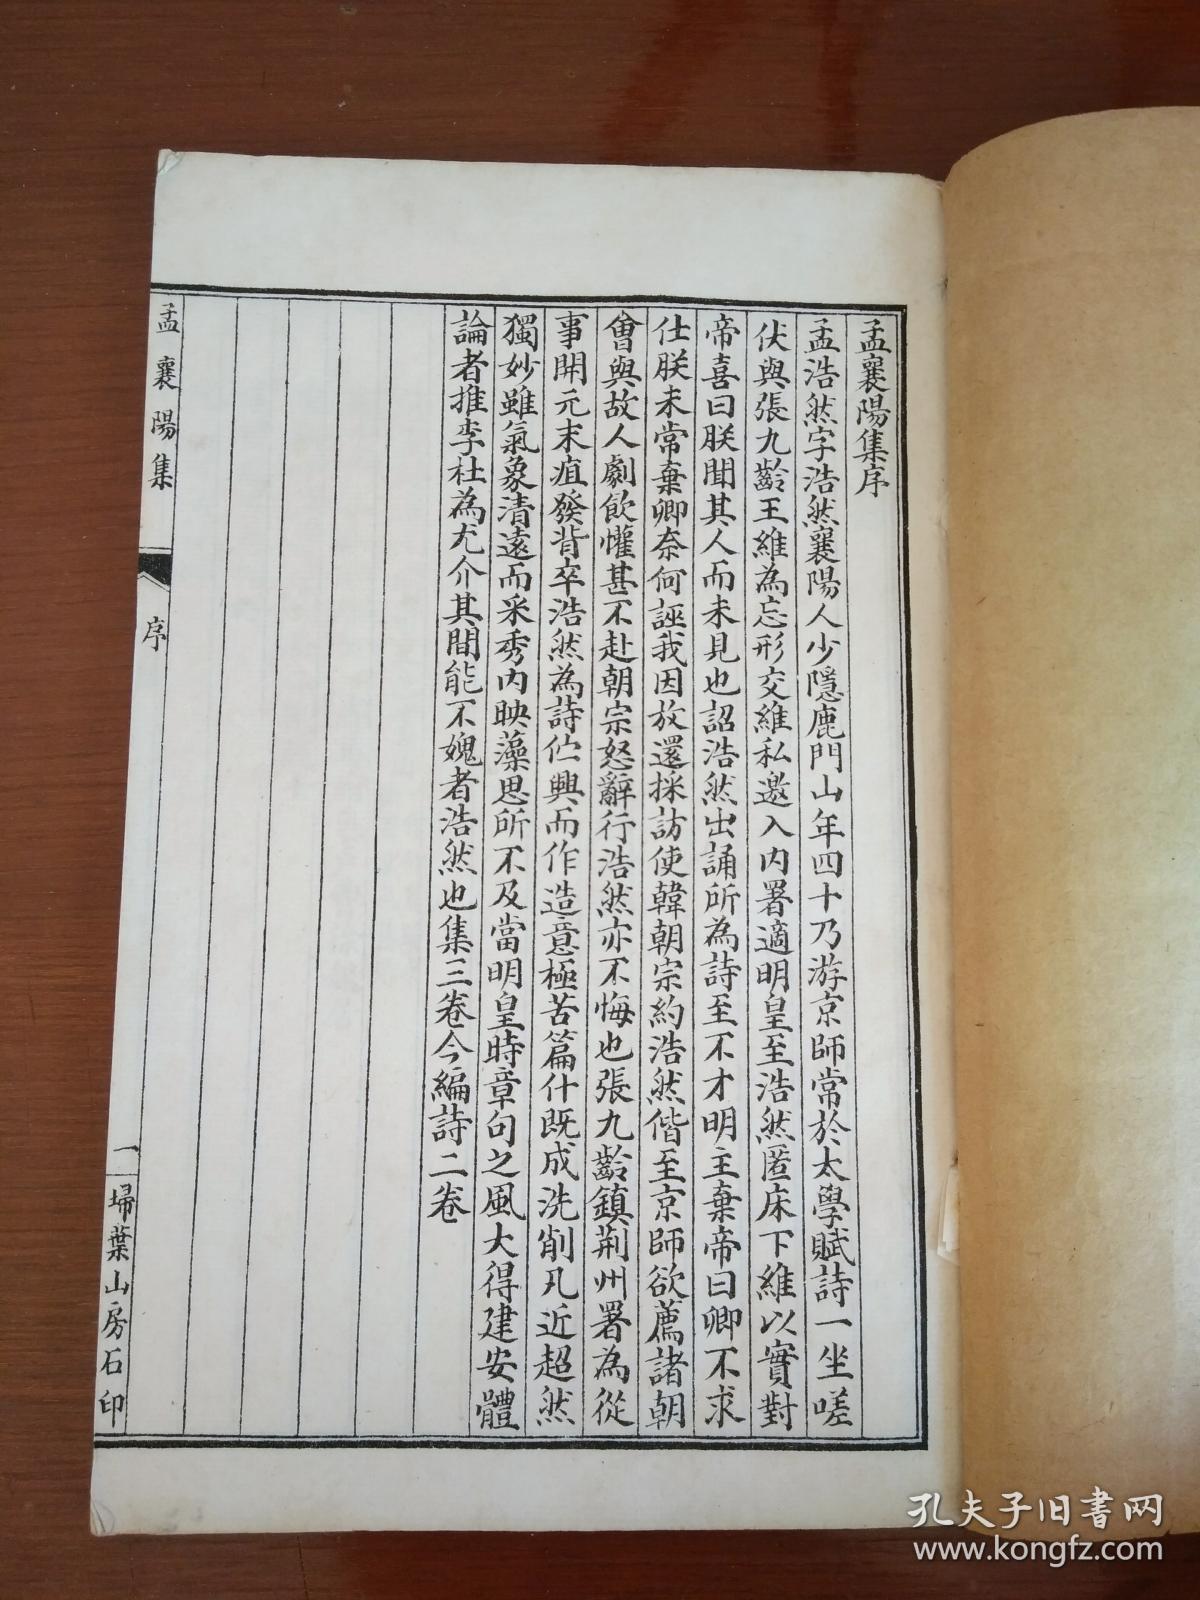 孟襄陽集序
孟浩然字浩然襄陽人少隱鹿門山年四十乃游京師常於太學賦詩一坐嗟
伏與張九齡王維為忘形交維私邀入內署適明皇至浩然匿床下維以實對
帝喜曰朕聞其人而未見也詔浩然出誦所為詩至不才明主棄帝曰卿不求
仕朕未常棄卿奈何誣我因放還採訪使韓朝宗約浩然偕至京師欲薦諸朝
會與故人劇飲懽甚不赴朝宗怒辭行浩然亦不悔也張九齡鎮荊州署為從
事開元末疽發背卒浩然為詩佇興而作造意極苦篇什既成洗削凡近超然
獨妙雖氣象清遠而采秀內映藻思所不及當明皇時章句之風大得建安體
論者推李杜為尤介其間能不媿者浩然也集三卷今編詩二卷
孟襄陽集
序
一
埽葉山房石印
孔夫子旧书网
www.kongfz.com